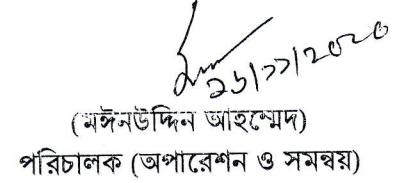 ২৬/১১/২০২০
(মঈনউদ্দিন আহম্মেদ)
পরিচালক (অপারেশন ও সমন্বয়)